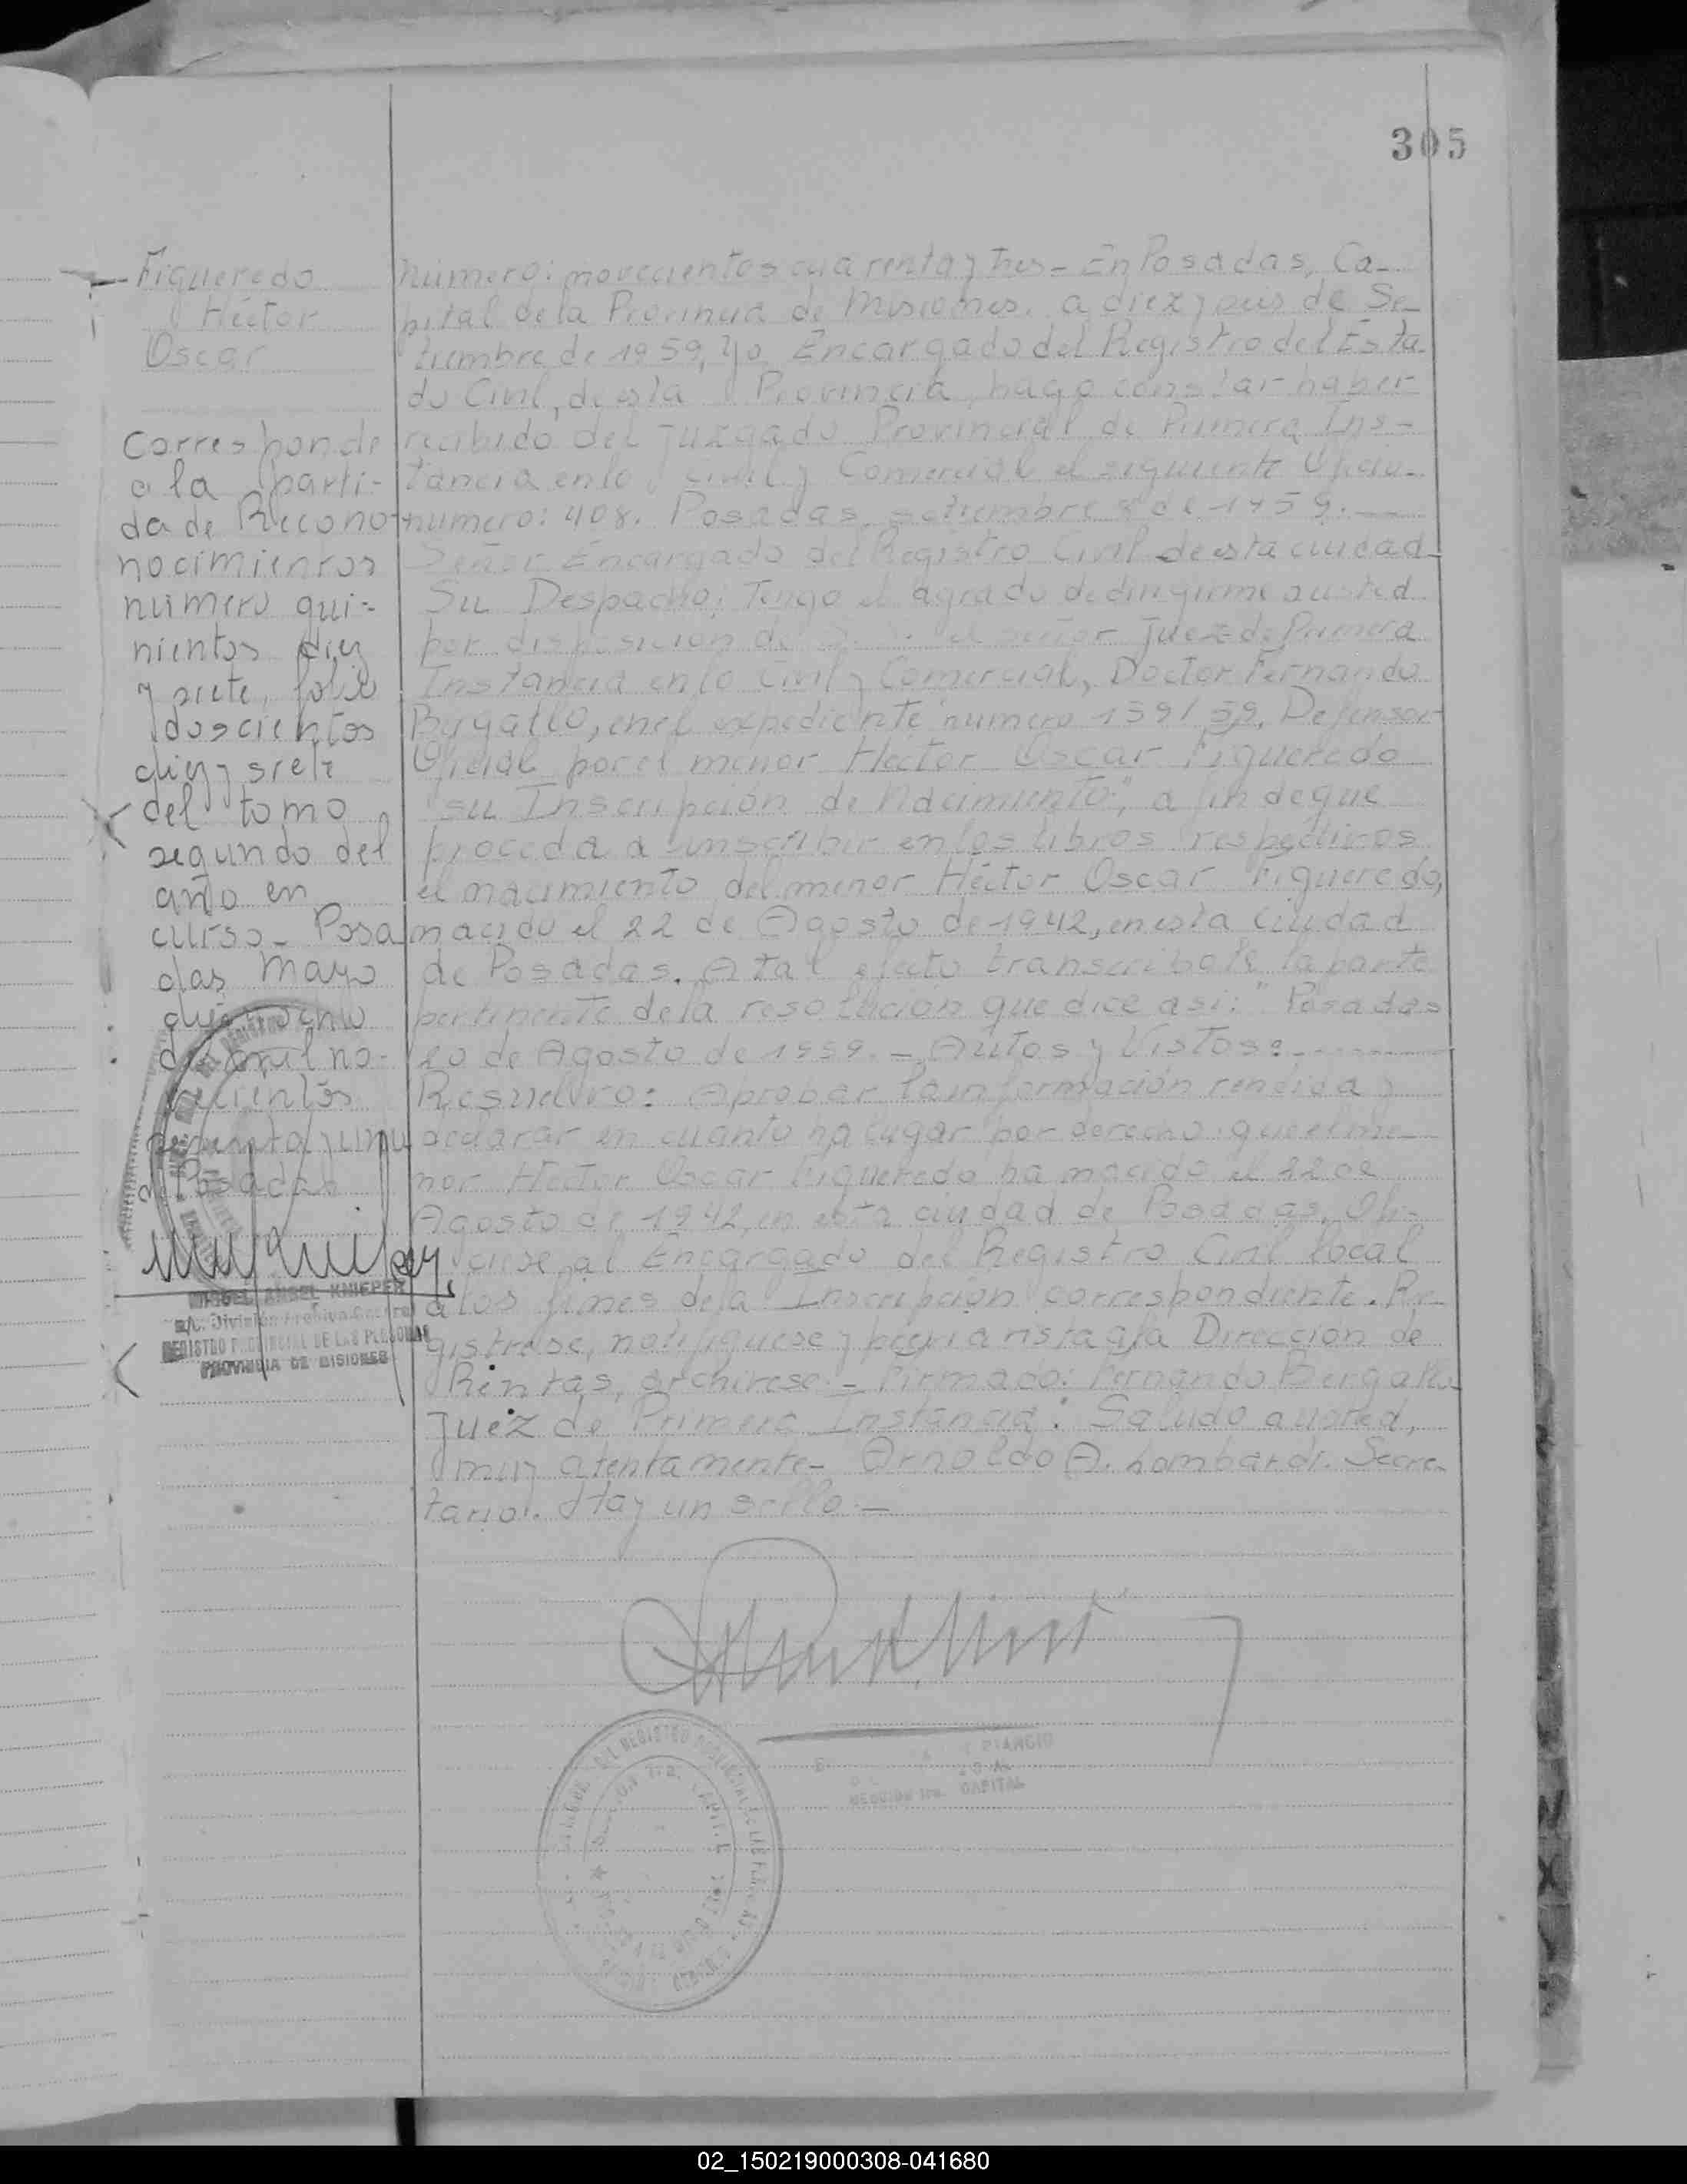 305
Figueredo
Héctor
Oscar
Corresponde
a la parti-
da de Recono-
nocimientos
número qui-
nientos diez
y siete, folio
doscientos
diez y siete
del tomo
segundo del
año en
curso. Posa
das Mayo
no-
Posadas
MIGUEL ANGEL KNIEPER
a/c. División Archivo General
REGISTRO PROVINCIAL DE LAS PERSONAS
PROVINCIA DE MISIONES
Número: novecientos cuarenta y tres - En Posadas, Ca-
pital de la Provincia de Misiones, a diez y seis de Se-
tiembre de 1959, Yo Encargado del Registro del Esta-
do Civil, de esta Provincia, hago constar haber
recibido del Juzgado Provincial de Primera Ins-
tancia en lo Civil y Comercial el siguiente Oficio-
número: 408. Posadas, setiembre 8 de 1959.-
Señor Encargado del Registro Civil de esta ciudad-
Su Despacho; Tengo el agrado de dirigirme a usted
por disposición de S. S. el señor Juez de Primera
Instancia en lo Civil y Comercial, Doctor Fernando
en el expediente número 1391/59, Defensor
Oficial por el menor Héctor Oscar Figueredo
su Inscripción de Nacimiento", a fin de que
proceda a inscribir en los libros respectivos
el nacimiento del menor Héctor Oscar Figueredo,
nacido el 22 de Agosto de 1942, en esta ciudad
de Posadas. A tal efecto transcribole la parte
pertinente de la resolución que dice así: "Posadas
20 de Agosto de 1959. - Autos y Vistos:
Resuelvo: Aprobar la información rendida y
declarar en cuanto ha lugar por derecho que el me-
nor Héctor Oscar Figueredo ha nacido el 22 de
Agosto de 1942, en esta ciudad de Posadas. Ofi-
ciese al Encargado del Registro Civil local
a los fines de la Inscripción correspondiente. Re-
gistrese, notifiquese y previa vista a la Dirección de
Rentas, archivese. - Firmado: Fernando Bergallo
Juez de Primera Instancia". Saludo a usted,
muy atentamente - Arnoldo A. Lombardi. Secre-
tario. Hay un sello. -
SECCION 1ra. CAPITAL
02_150219000308-041680